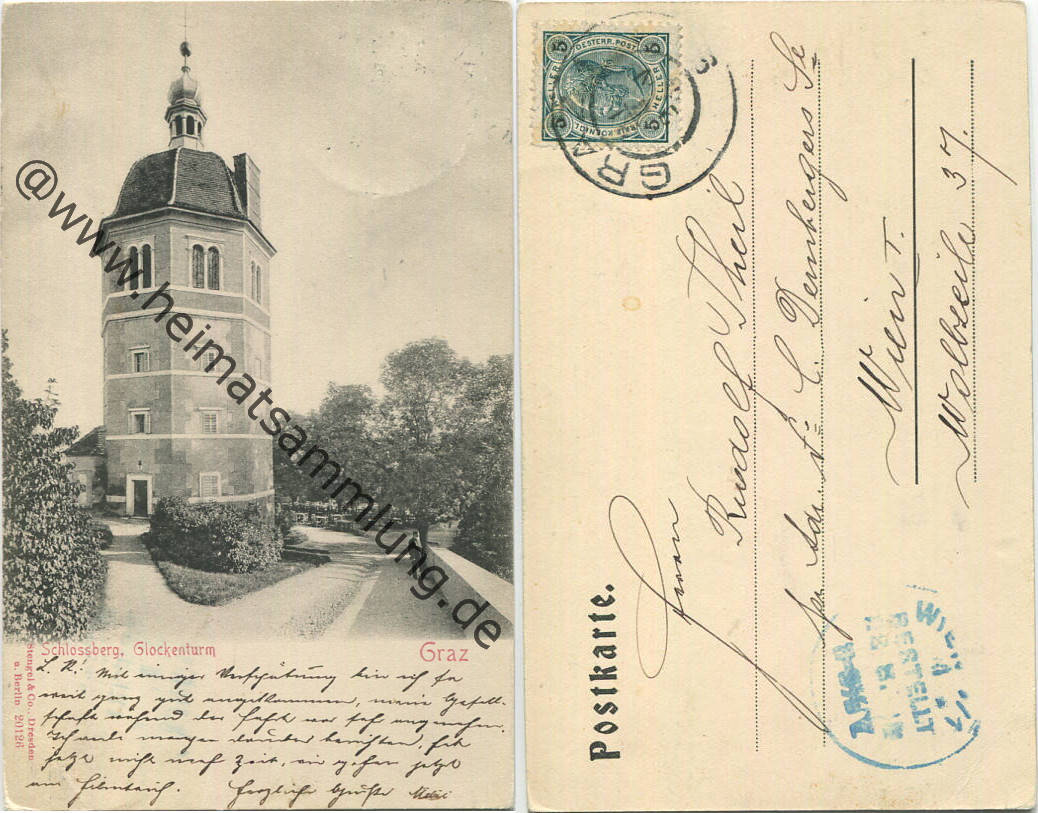 @www.heimatsammlung.de
Schlossberg, Glockenturm
Graz
Stengel & Co., Dresden
u. Berlin 20126
L. R! Mit einiger Verspätung bin ich so
weit ganz gut angekommen, meine Gesell-
schaft während der Fahrt war sehr angenehm.
darüber berichten, hab
jetzt nicht viel Zeit, wir gehen jetzt
am Hilmteich. Herzliche Grüße
5 OESTERR. POST 5
HELLER HELLER
5 5
GRAZ
Postkarte.
Herrn
Rudolf Theil
Wien I.
Wollzeile 37.
WIEN
BESTELLT